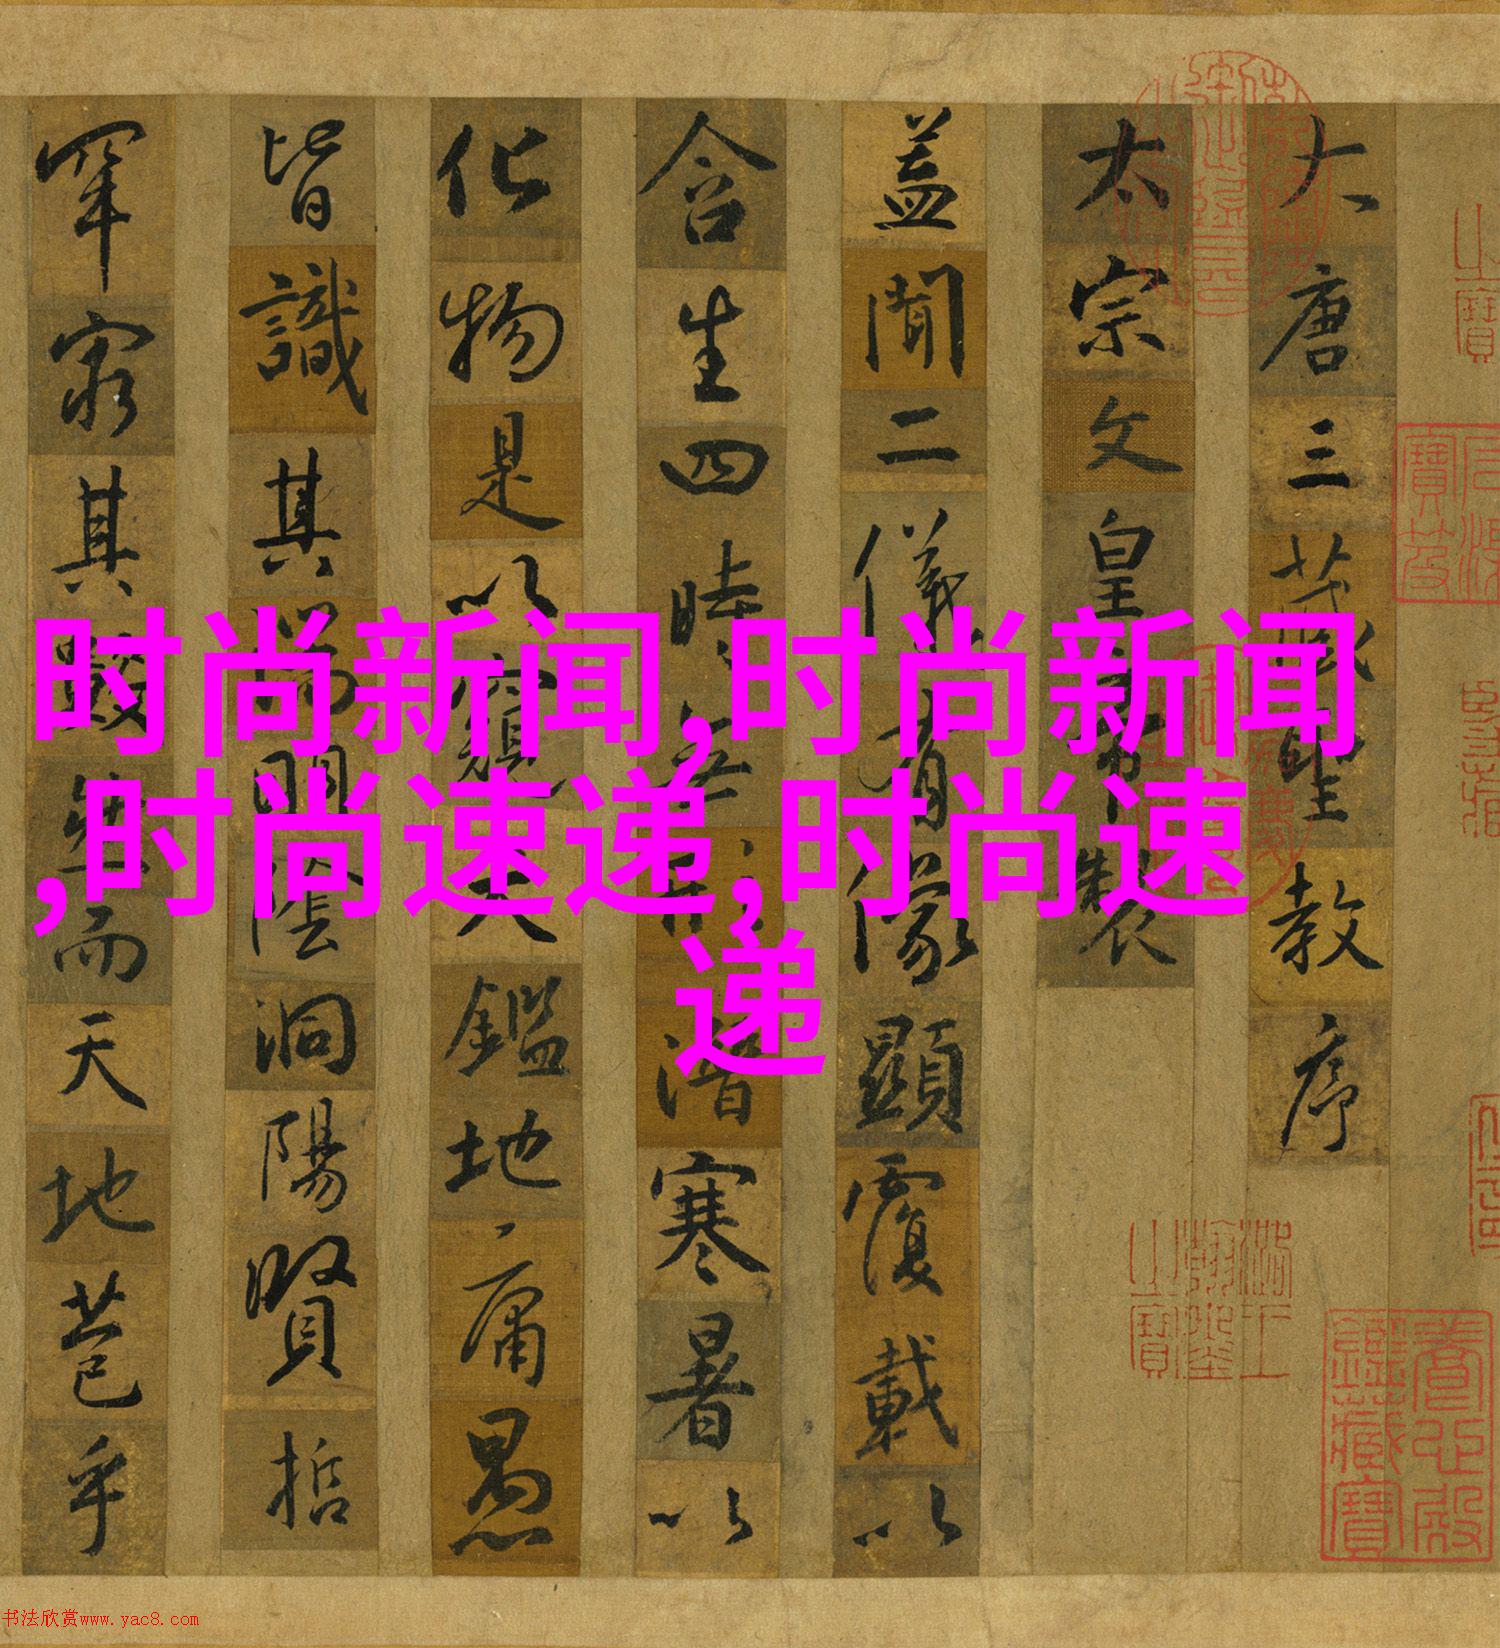 大唐三藏聖教序
太宗文皇帝製
蓋聞二儀有像顯覆載以
含生四時無形潛寒暑以
化物是以窺天鑑地庸愚
皆識其端明陰洞陽賢哲
罕窮其數然而天地苞乎
时尚新闻,时尚新闻
,时尚速递,时尚速
递
養心殿鑑藏寶
书法欣赏www.yac8.com